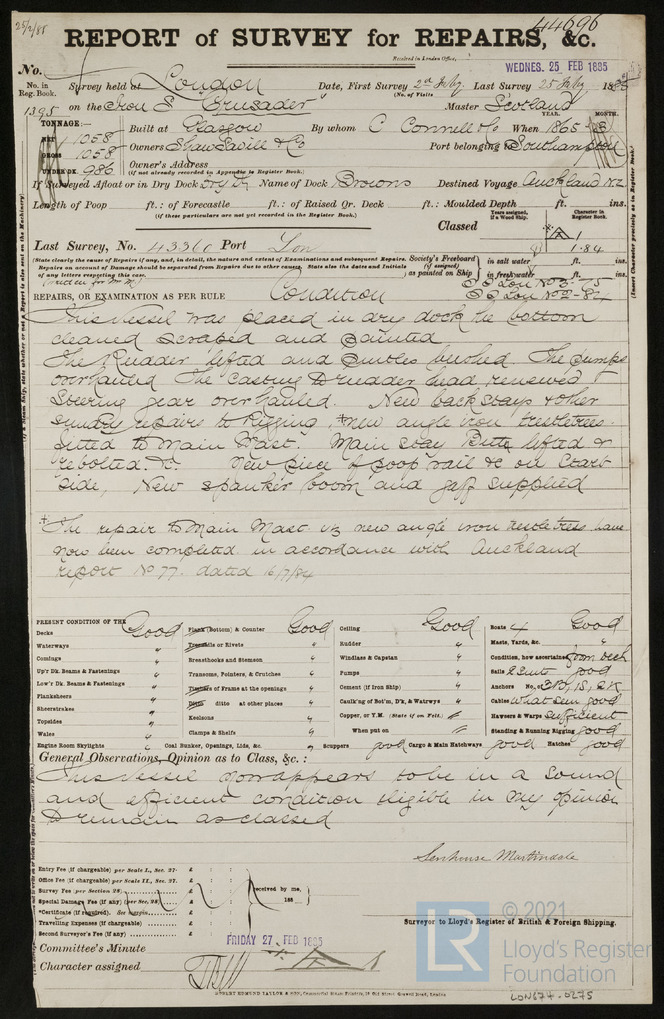 25/2/85
44696
REPORT of SURVEY for REPAIRS, &c.
Received in London Office,
WEDNES. 25 FEB 1885
No.
No. in Reg. Book.
1395
Survey held at London Date, First Survey 2nd Feby Last Survey 25 Feby 1885
(No. of Visits
on the Iron S "Crusader" Master Scotland
TONNAGE:—
NET 1058
GROSS 1058
UNDER DK. 986
YEAR. MONTH.
Built at Glasgow By whom C Connell & Co When 1865
Owners Shaw Savill & Co Port belonging to Southampton
Owner's Address
(if not already recorded in Appendix to Register Book.)
If Surveyed Afloat or in Dry Dock Dry Dk Name of Dock Browns Destined Voyage Auckland NZ
Length of Poop ft.: of Forecastle ft.: of Raised Qr. Deck ft.: Moulded Depth ft. ins.
(if these particulars are not yet recorded in the Register Book.)
Classed
Years assigned, if a Wood Ship.
Character in Register Book.
A 1
1.84
Last Survey, No. 43360 Port Lon
(State clearly the cause of Repairs if any, and, in detail, the nature and extent of Examinations and subsequent Repairs.
Repairs on account of Damage should be separated from Repairs due to other causes. State also the dates and Initials
of any letters respecting this case.
Society's Freeboard (if assigned) as painted on Ship
in salt water ft. ins.
in freshwater ft. ins.
SS Lon No 3-75
SS Lon No 2-84
REPAIRS, OR EXAMINATION AS PER RULE Condition
This vessel was placed in dry dock the bottom
cleaned scraped and painted.
The Rudder lifted and pintles bushed. The pumps
overhauled The casting to rudder head renewed &
Steering gear overhauled. New backstays & other
sundry repairs to Rigging, *new angle iron trestletrees
fitted to Main Mast. Main stay Bitts lifted &
rebolted. &c. New piece of poop rail &c on Starb
side, New spanker boom and gaff supplied
*The repair to Main Mast viz new angle iron trestletrees have
now been completed in accordance with Auckland
report No 77. dated 16/7/84
PRESENT CONDITION OF THE
Decks Good
Waterways "
Comings "
Up'r Dk. Beams & Fastenings "
Low'r Dk. Beams & Fastenings "
Planksheers "
Sheerstrakes "
Topsides "
Wales "
Engine Room Skylights "
Plank (Bottom) & Counter Good
Treenails or Rivets "
Breasthooks and Stemson "
Transoms, Pointers, & Crutches "
Timbers of Frame at the openings "
Ditto ditto at other places "
Keelsons "
Clamps & Shelfs "
Coal Bunker, Openings, Lids, &c. "
Ceiling Good
Rudder "
Windlass & Capstan "
Pumps "
Cement (if Iron Ship) "
Caulk'ng of Bot'm, D'k, & Watrwys "
Copper, or Y.M. (State if on Felt.) "
When put on "
Scuppers good Cargo & Main Hatchways good Hatches good
Boats 4 Good
Masts, Yards, &c. "
Condition, how ascertained from deck
Sails 2 Suits good
Anchors No. 3B, 1S, 2K
Cables what seen good
Hawsers & Warps sufficient
Standing & Running Rigging good
General Observations, Opinion as to Class, &c.:
This vessel now appears to be in a sound
and efficient condition eligible in my opinion
to remain as classed
Senhouse Martindale
Entry Fee (if chargeable) per Scale I., Sec. 27. £ : :
Office Fee (if chargeable) per Scale II., Sec. 27. £ : :
Survey Fee (per Section 28) £ : :
Special Damage Fee (if any) (per Sec. 28) £ : :
*Certificate (if required). See margin. £ : :
Travelling Expenses (if chargeable) £ : :
Second Surveyor's Fee (if any) £ : :
Received by me,
188
Surveyor to Lloyd's Register of British & Foreign Shipping.
Committee's Minute FRIDAY 27 FEB 1885
Character assigned A 1
LR
© 2021
Lloyd's Register
Foundation
LON674-0275